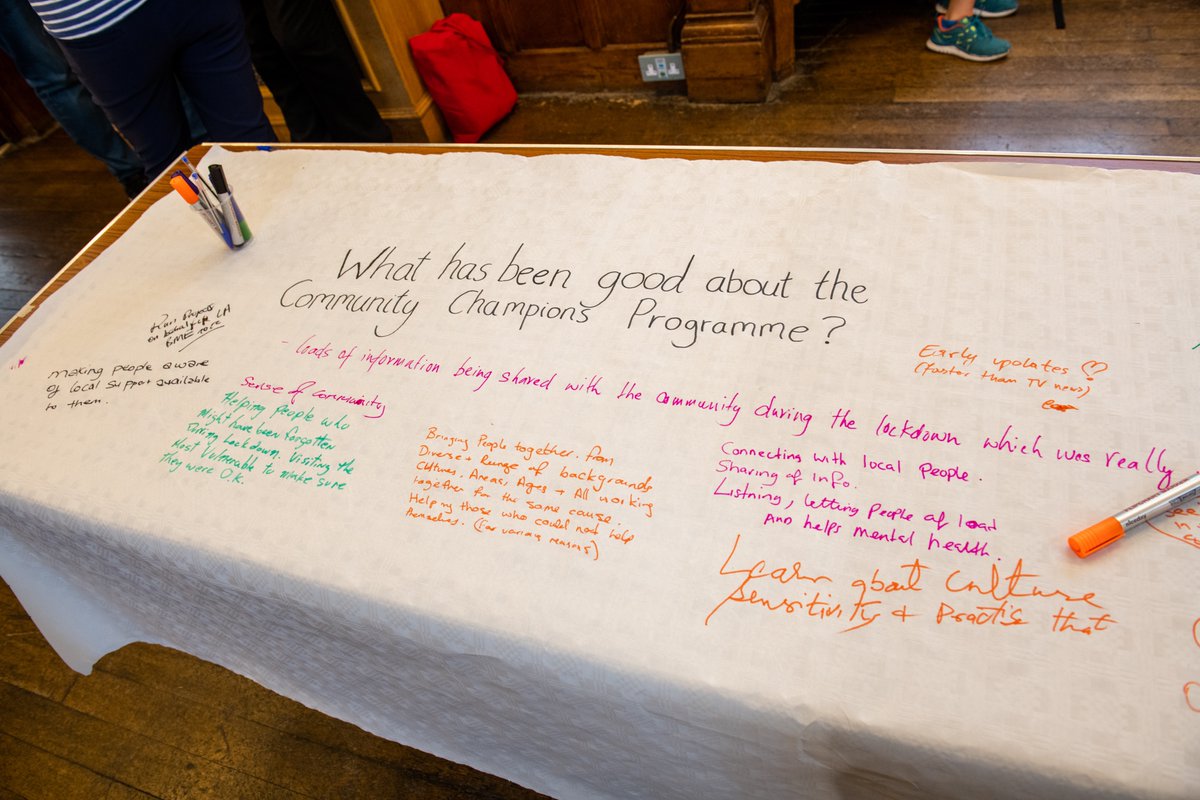 What has been good about the
Community Champions Programme?
Projects
on
BME
making people aware
of local support available
to them.
- loads of information being shared with the community during the lockdown which was really
Early updates
(faster than TV news)
Sense of community
Helping people who
Might have been forgotten
During Lockdown. Visiting the
Most Vulnerable to make sure
they were O.K.
Bringing People together. from
Diverse + Range of backgrounds
Cultures, Areas, Ages + All working
together for the same cause.
Helping those who could not help
themselves. (For various reasons)
Connecting with local people.
Sharing of Info.
Listning, letting people of load
And helps mental health.
Learn about Culture
Sensitivity + Practise that